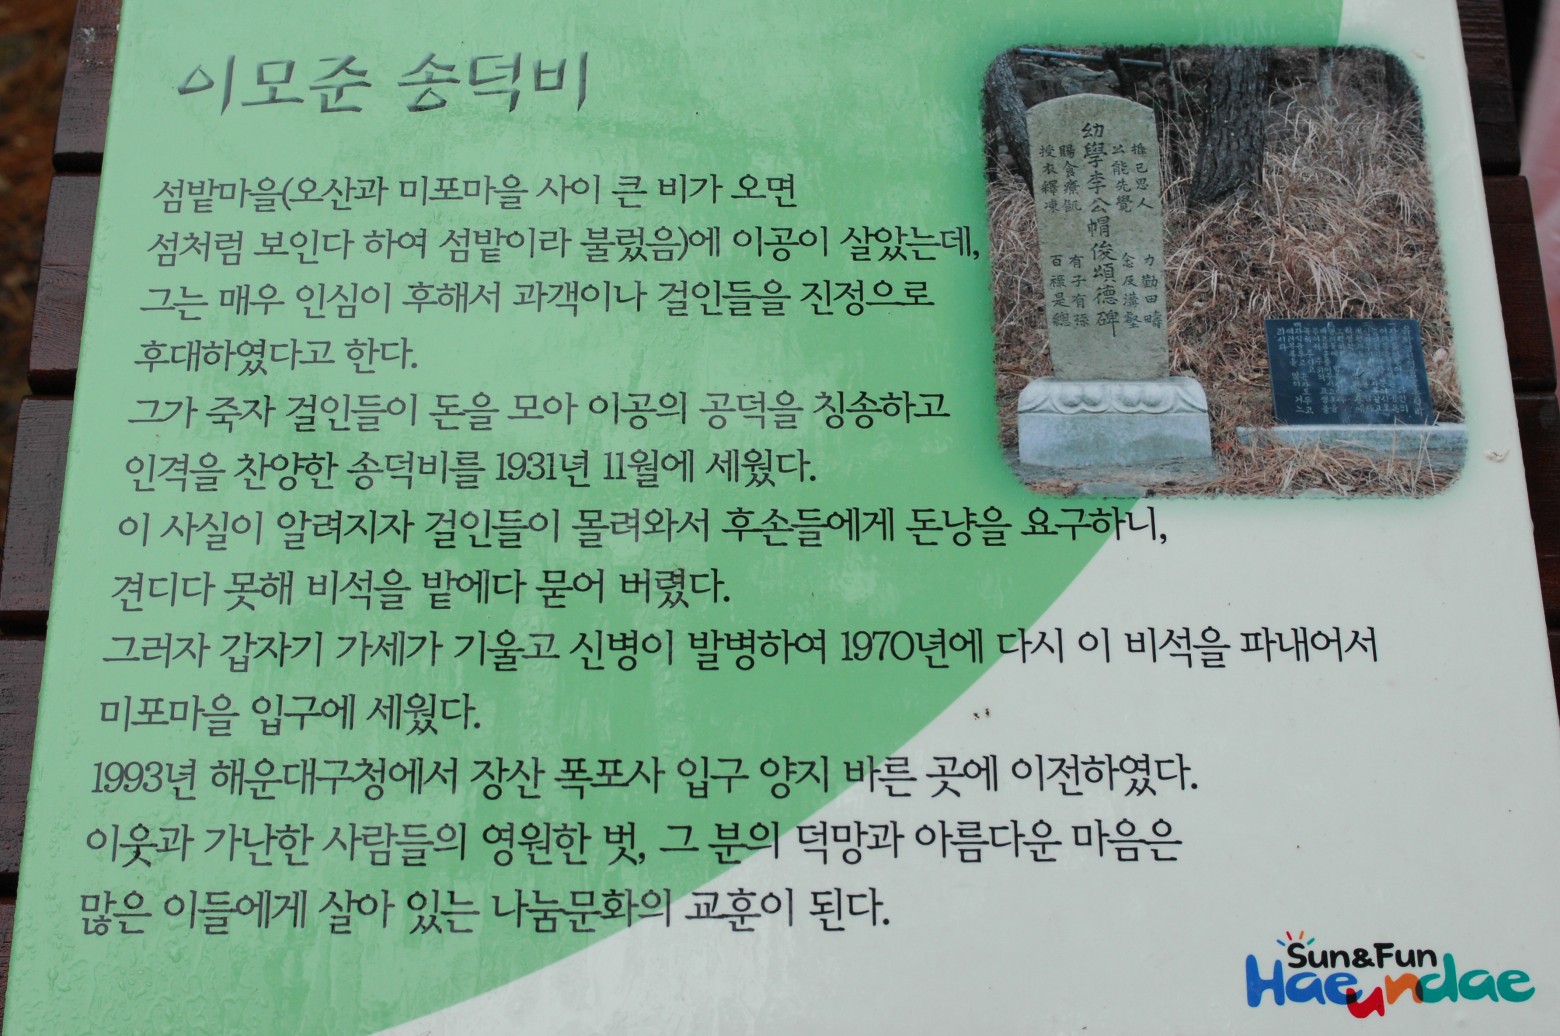 이모준 송덕비
섬밭마을(오산과 미포마을 사이 큰 비가 오면
섬처럼 보인다 하여 섬밭이라 불렀음)에 이공이 살았는데,
그는 매우 인심이 후해서 과객이나 걸인들을 진정으로
후대하였다고 한다.
그가 죽자 걸인들이 돈을 모아 이공의 공덕을 칭송하고
인격을 찬양한 송덕비를 1931년 11월에 세웠다.
이 사실이 알려지자 걸인들이 몰려와서 후손들에게 돈냥을 요구하니,
견디다 못해 비석을 밭에다 묻어 버렸다.
그러자 갑자기 가세가 기울고 신병이 발병하여 1970년에 다시 이 비석을 파내어서
미포마을 입구에 세웠다.
1993년 해운대구청에서 장산 폭포사 입구 양지 바른 곳에 이전하였다.
이웃과 가난한 사람들의 영원한 벗, 그 분의 덕망과 아름다운 마음은
많은 이들에게 살아 있는 나눔문화의 교훈이 된다.
推己思人 力勸田疇
公能先覺 念及溝壑
幼學李公帽俊頌德碑
賜食療飢 有子有孫
授衣釋凍 百祿是總
Sun&Fun
Haeundae